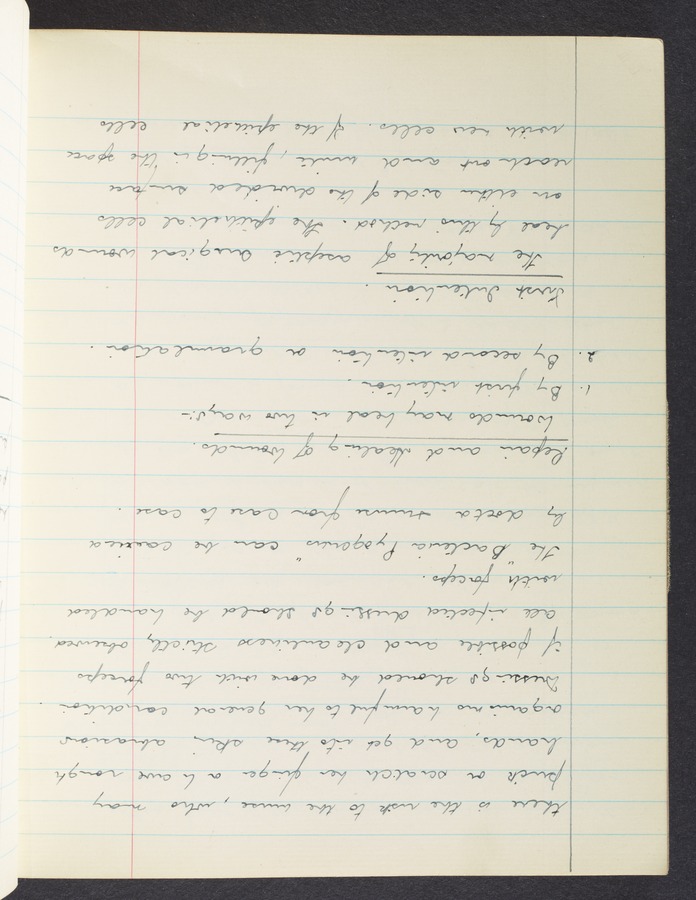 there is the risk to the nurse, who may
prick or scratch her finger or have rough
hands, and get into these skin abrasions
organisms harmful to her general condition.
Dressings should be done with two forceps
if possible and cleanliness strictly observed.
All infected dressings should be handled
with forceps.
The "Bacteria Pyogenius" can be carried
by doctor & nurse from case to case.
Repair and Healing of Wounds.
Wounds may heal in two ways:-
1. By first intention.
2. By second intention or granulation.
First Intention.
The majority of aseptic surgical wounds
heal by this method. The epithelial cells
on either side of the divided surface
reach out and unite, filling in the space
with new cells. If the epithelial cells